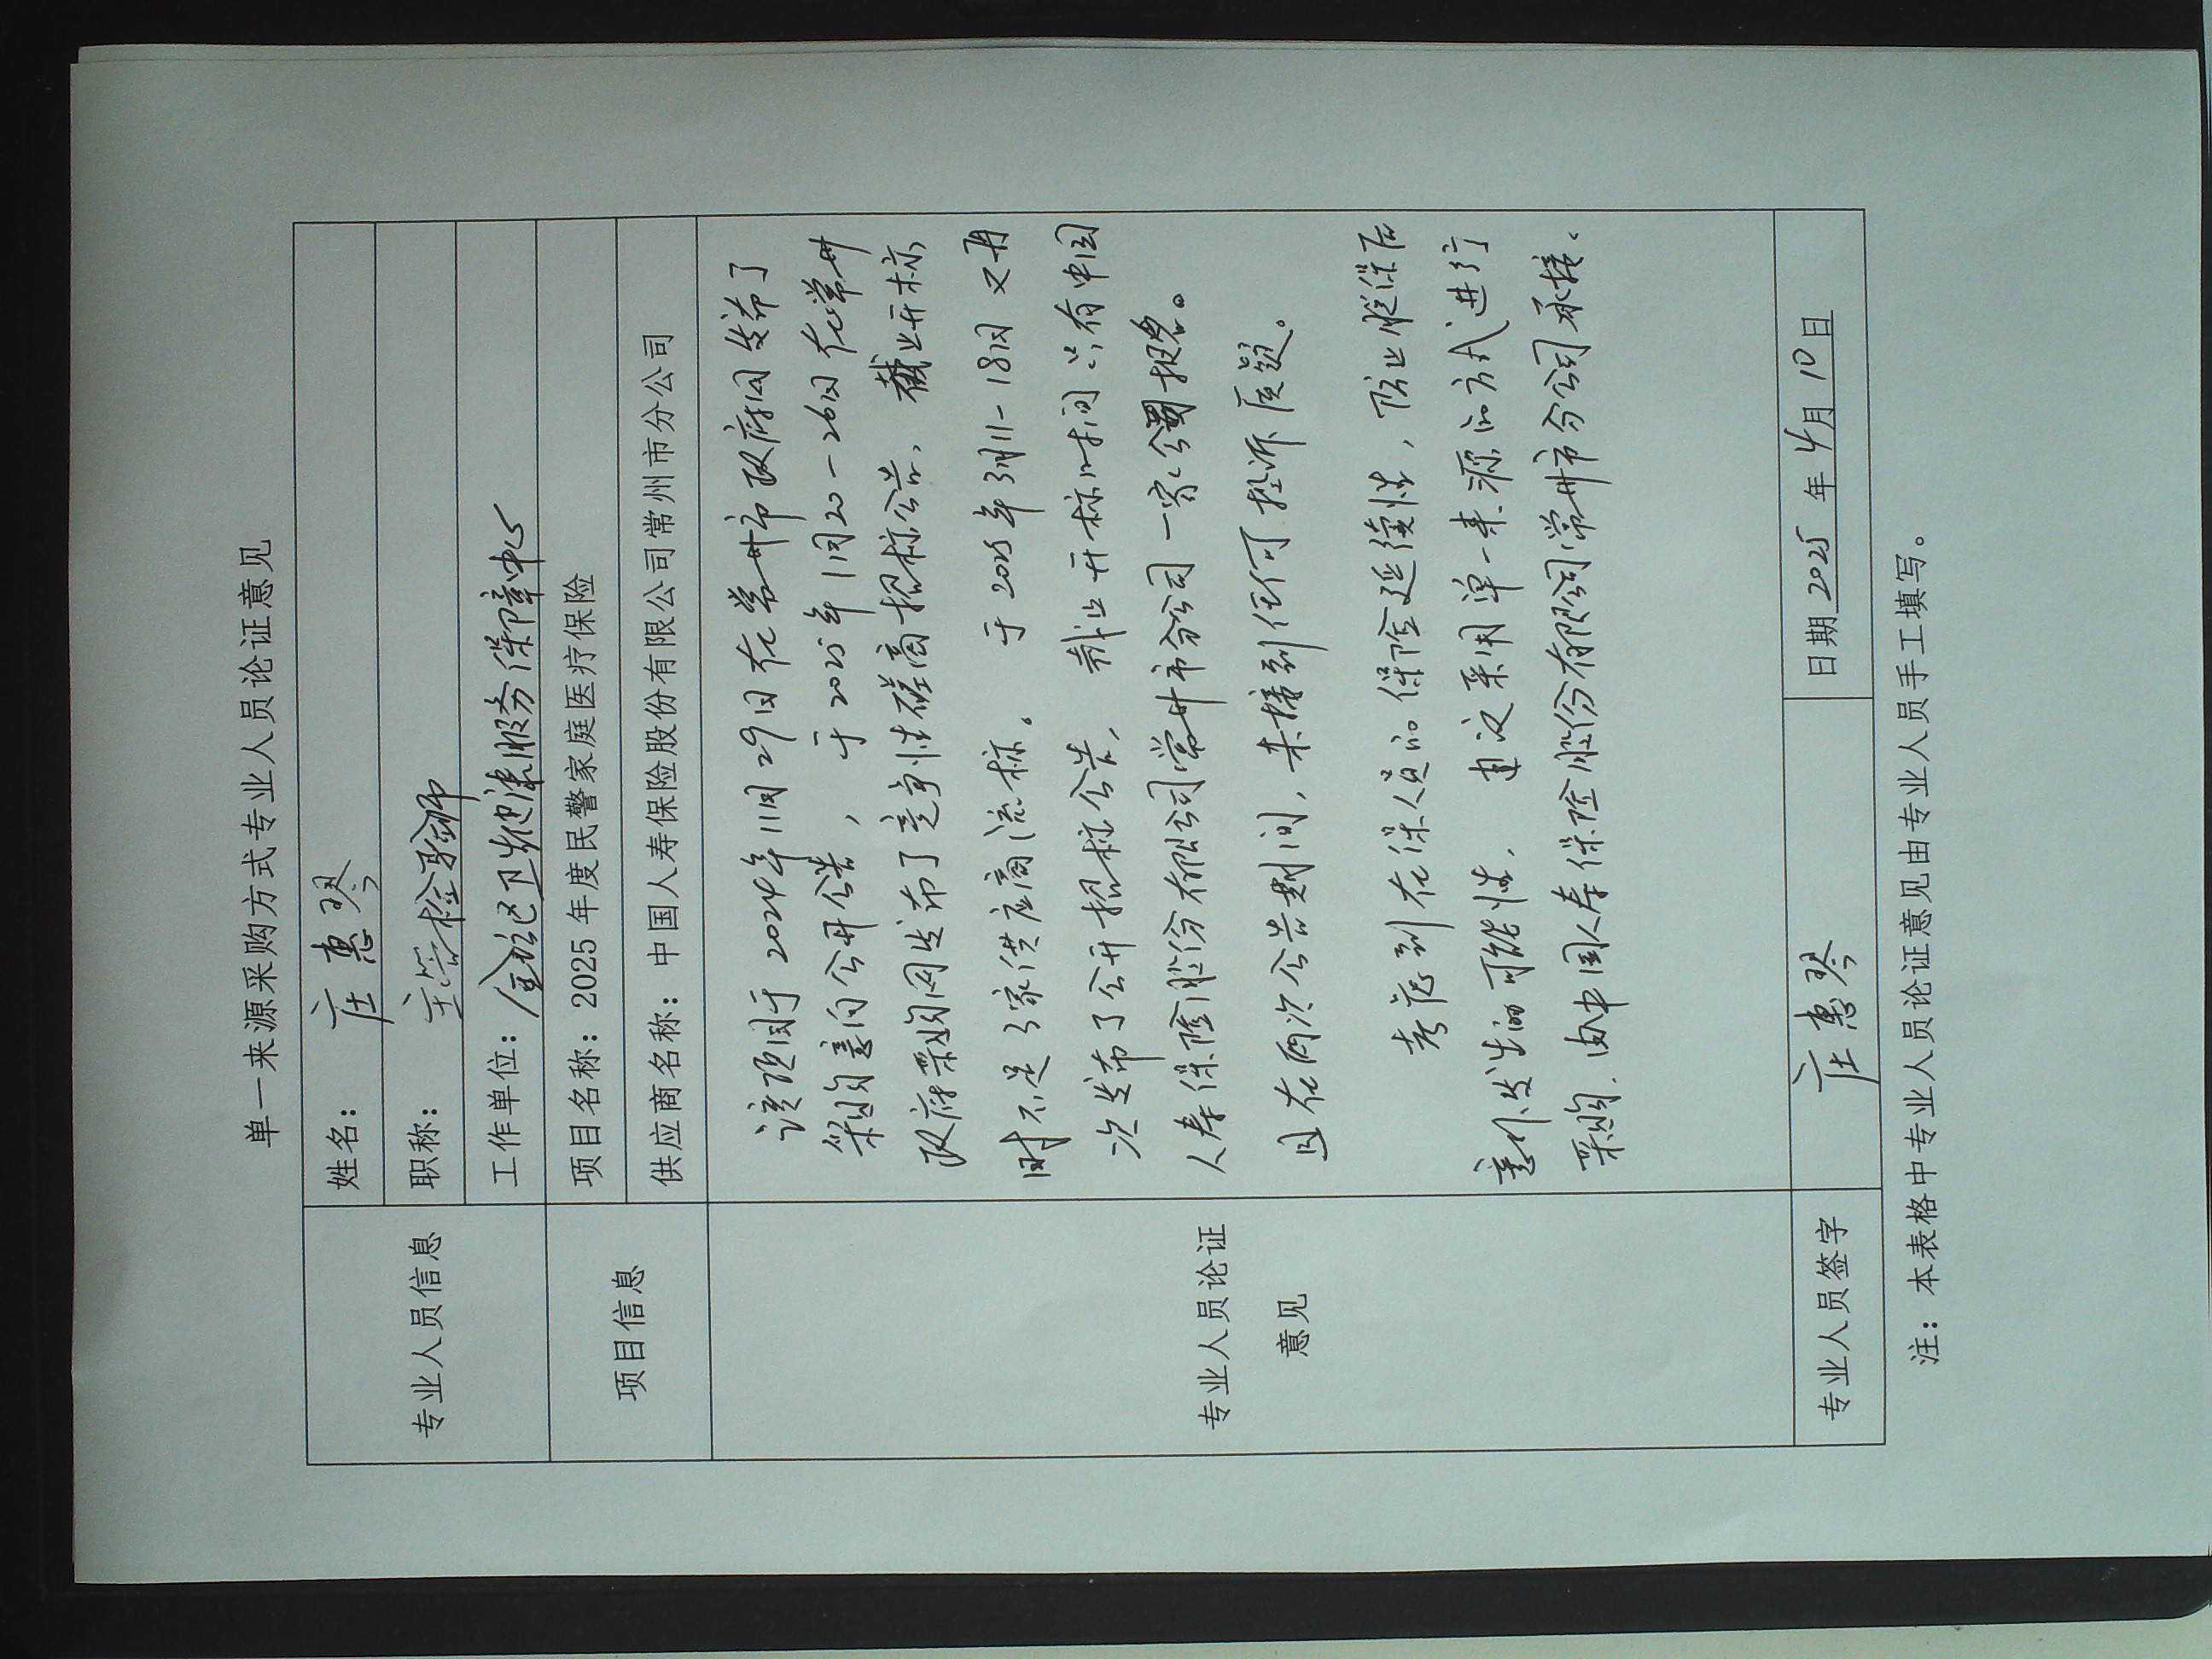 单一来源采购方式专业人员论证意见
专业人员信息
姓名：庄惠琴
职称：主管检验师
工作单位：金坛区卫生健康服务保障中心
项目信息
项目名称：2025年度民警家庭医疗保险
供应商名称：中国人寿保险股份有限公司常州市分公司
专业人员论证
意见
该项目于2024年11月29日在常州市政府网发布了
采购意向公开公告，于2025年1月20-26日在常州
政府采购网发布了竞争性磋商招标公告，截止开标
时不足3家供应商流标。于2025年3月11-18日又再
次发布了公开招标公告，截止开标时间只有中国
人寿保险股份有限公司常州市分公司一家报名。
且在两次公告期间，未接到任何投诉质疑。
考虑到在保人员的保险延续性，防止脱保后
意外发生的可能性，建议采用单一来源的方式进行
采购，由中国人寿保险股份有限公司常州市分公司承接。
专业人员签字
庄惠琴
日期 2025 年 4月 10日
注：本表格中专业人员论证意见由专业人员手工填写。